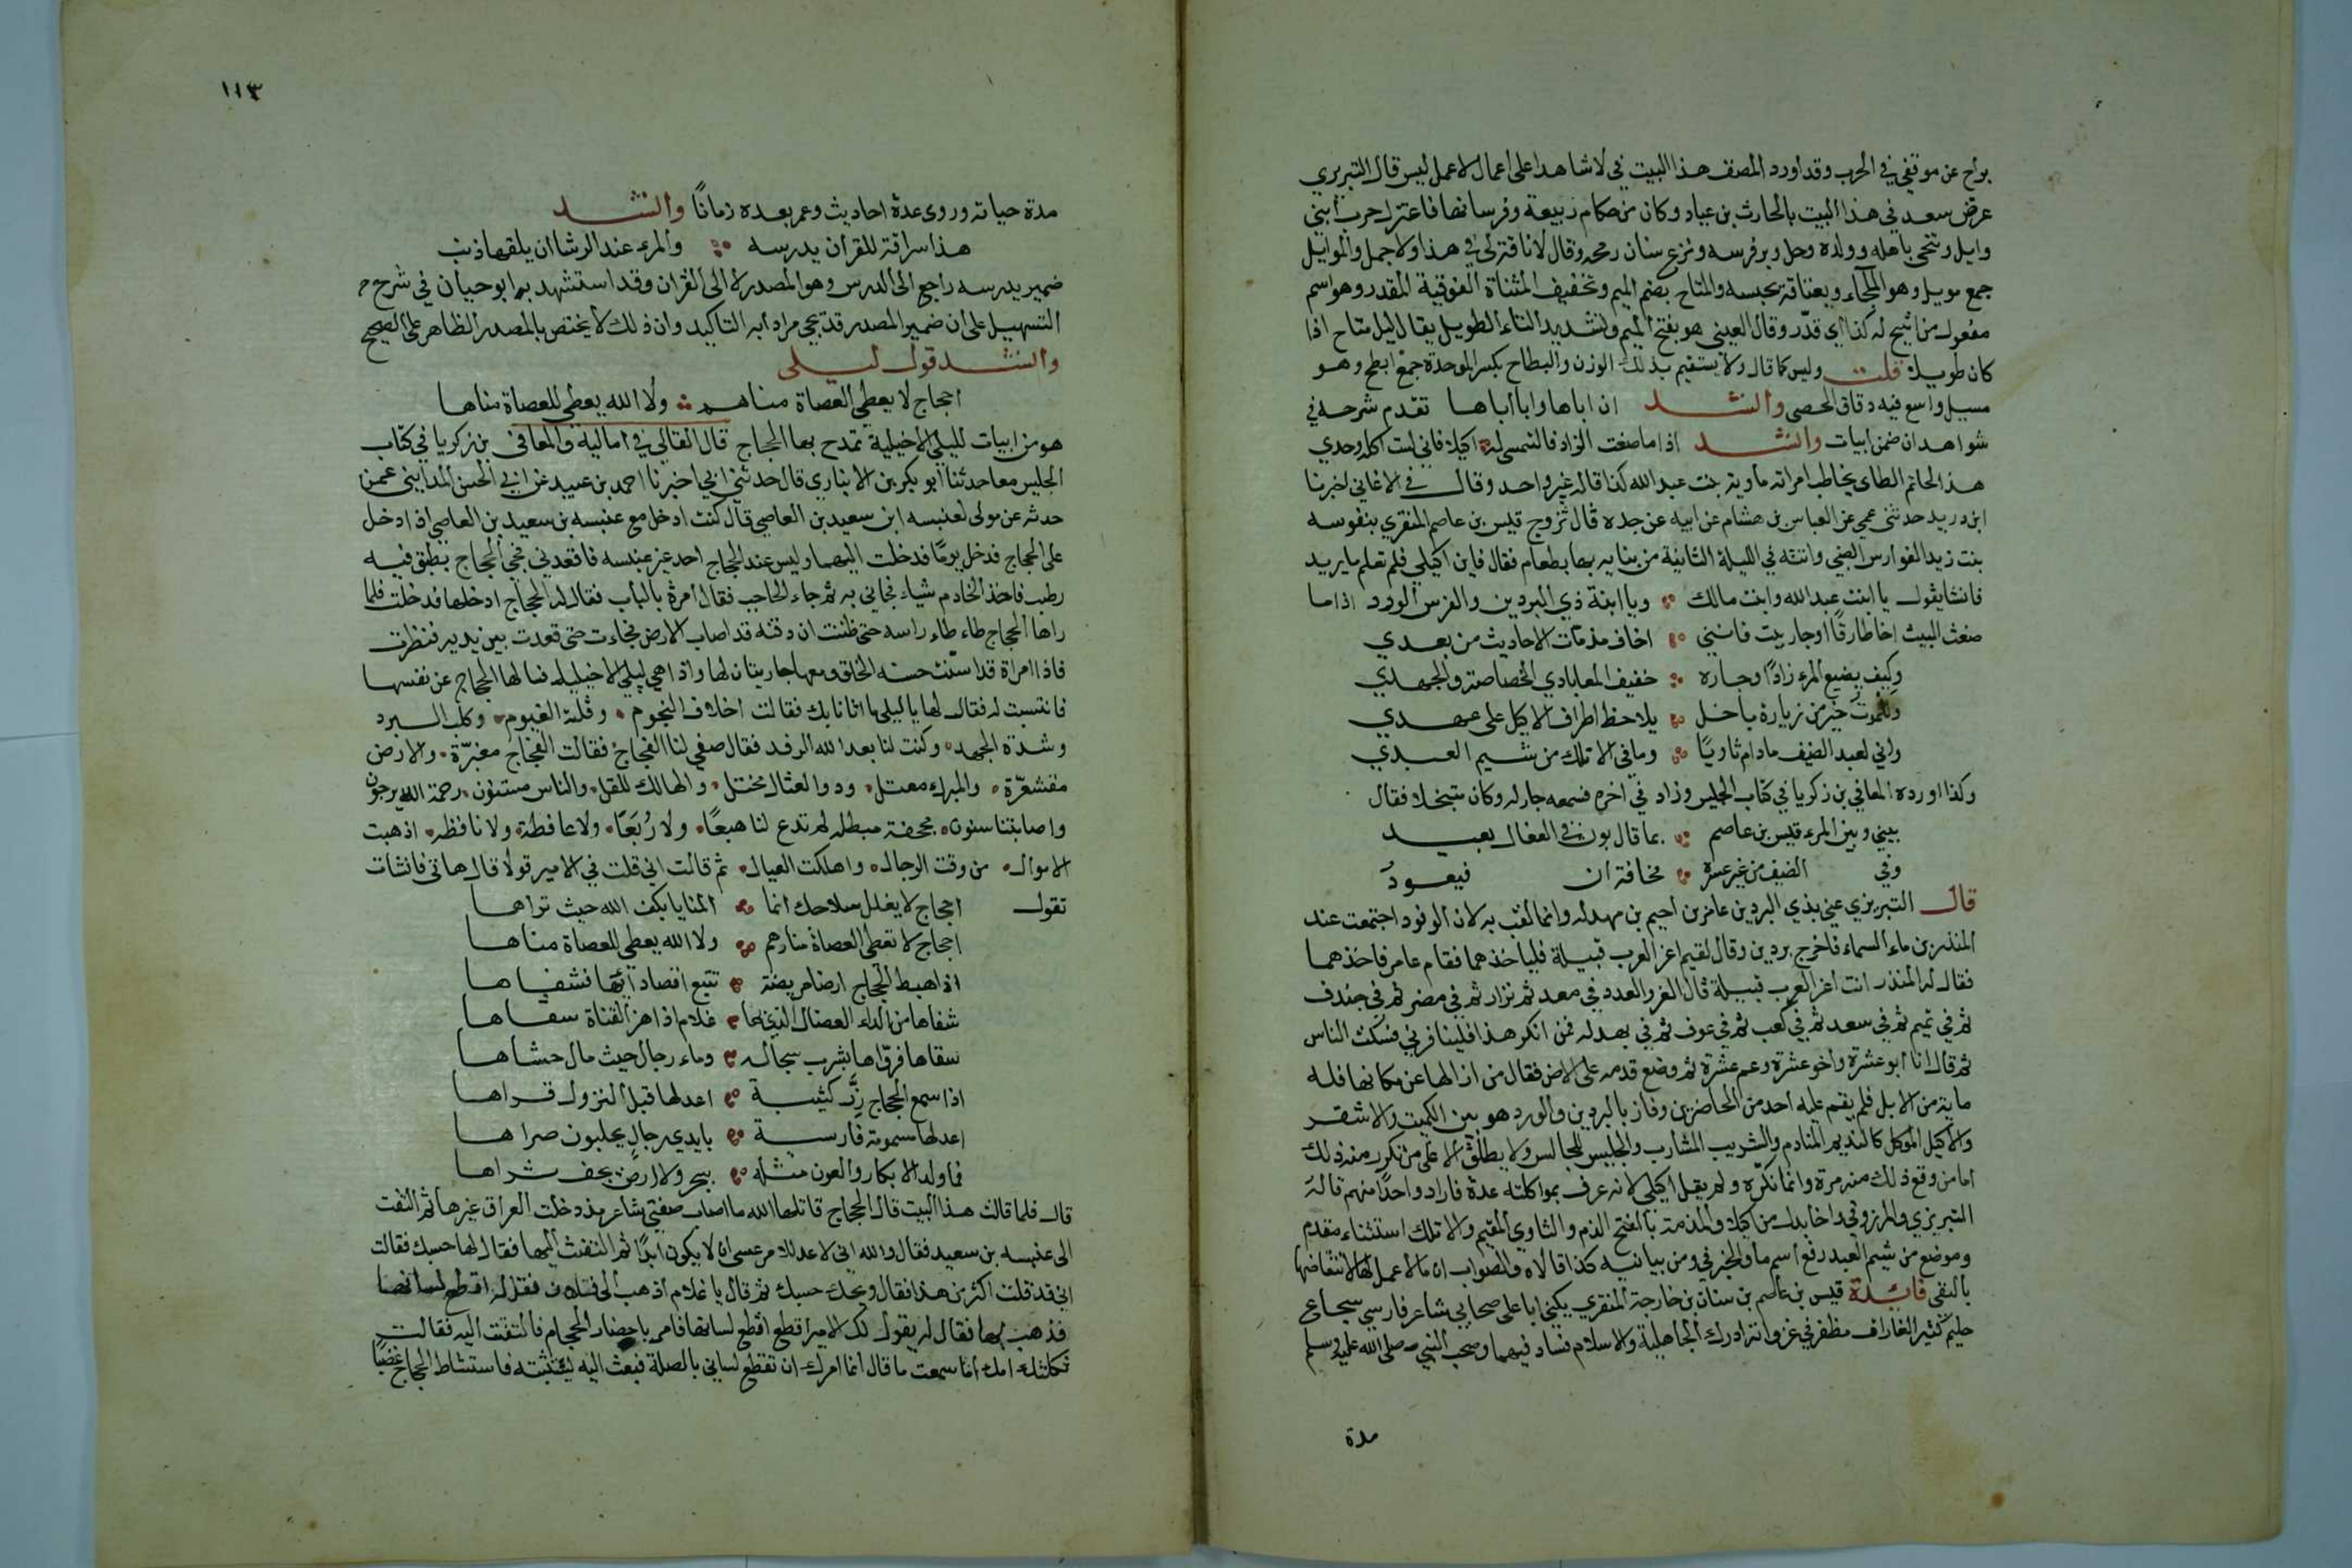 براح عن موقفي في الحرب وقد اورد المصنف هذا البيت في لا شاهدا على اعمال لا عمل ليس قال التبريزي
عرض سعد في هذا البيت بالحارث بن عباد وكان من حكام ربيعة وفرسانها فاعتزل حرب ابني
وايل وتنحى باهله وولده وحل وبر فرسه ونزع سنان رمحه وقال لا ناقة لي في هذا ولا جمل والموايل
جمع مويل وهو الملجاء ويعتاقه يحبسه والمتاح بضم الميم وتخفيف المثناة الفوقية المقدر وهو اسم
مفعول من اتيح له كذا اي قدّر وقال العيني هو بفتح الميم وتشديد التاء الطويل يقال ليل متاح اذا
كان طويلا قلت وليس كما قال ولا يستقيم بذلك الوزن والبطاح بكسر الموحدة جمع ابطح وهو
مسيل واسع فيه دقاق الحصى وانشد ان اباها وابا اباها تقدم شرحه في
شواهد ان ضمن ابيات وانشد اذا ما صنعت الزاد فالتمسي له اكيلا فاني لست اكله وحدي
هذا لحاتم الطاى يخاطب امراته ماوية بنت عبد الله كذا قاله غير واحد وقال في الاغاني اخبرنا
ابن دريد حدثني عمي عن العباس بن هشام عن ابيه عن جده قال تزوج قيس بن عاصم المنقري بنفوسه
بنت زيد الفوارس الضبي واتته في الليلة الثانية من بنايه بها بطعام فقال فاين اكيلي فلم تعلم ما يريد
فانشا يقول يا ابنت عبد الله وابنت مالك ويا ابنة ذي البردين والفرس الورد اذا ما
صنعت البيت اخا طارقا او جار بيت فانني اخاف مذمات الاحاديث من بعدي
وكيف يضيع المرء زادا وجاره خفيف المعا بادي الخصاصة والجهدي
وللموت خير من زيارة باخل يلاحظ اطراف الاكيل على عمدي
واني لعبد الضيف مادام ثاويا وما في الا تلك من شيم العبدي
وكذا اورده المعافي بن زكريا في كتاب الجليس وزاد في اخره فسمعه جار له وكان متبخلا فقال
بيني وبين المرء قيس بن عاصم بما قال بون في الفعال بعيد
وفي الضيف من غير عسرة مخافة ان فيعودُ
قال التبريزي عنى بذي البردين عامر بن احيم بن بهدله وانما لقب به لان الوفود اجتمعت عند
المنذر بن ماء السماء فاخرج بردين وقال ليقم اعز العرب قبيلة فلياخذهما فقام عامر فاخذهما
فقال له المنذر انت اعز العرب قبيلة قال العز والعدد في معد ثم نزار ثم في مضر ثم في خندف
ثم في تميم ثم في سعد ثم في كعب ثم في عوف ثم في بهدله فمن انكر هذا فلينافرني فسكت الناس
ثم قال انا ابو عشرة واخو عشرة وعم عشرة ثم وضع قدمه على الارض فقال من ازالها عن مكانها فله
ماية من الابل فلم يقم عليه احد من الحاضرين وفاز بالبردين والورد هو بين الكميت والاشقر
والاكيل الموكل كالنديم المنادم والشريب المشارب والجليس للمجالس ولا يطلق الا على من تكرر منه ذلك
اما من وقع ذلك منه مرة وانما نكره ولم يقل اكيلي لانه عرف بمواكلته عدة فاراد واحدا منهم قاله
التبريزي والمرزوقي واخا بدل من اكيلا والمذمة بالفتح الذم والثاوي المقيم والا تلك استثناء مقدم
وموضع من شيم العبد رفع اسم ما والخبر في ومن بيانيه كذا قالاه والصواب ان ما لا عمل لها لانتقاضها
بالنفي فائدة قيس بن عاصم بن سنان بن خارجة المنقري يكنى ابا على صحابي شاعر فارسي شجاع
حليم كثير الغارات مظفر في غزواته ادرك الجاهلية والاسلام فساد فيهما وصحب النبي صلى الله عليه وسلم
مدة
١١٣
مدة حياته وروى عدة احاديث وعمر بعده زمانا وانشد
هذا سراقة للقران يدرسه والمرء عند الرشا ان يلقها ذيب
ضمير يدرسه راجع الى الدرس وهو المصدر لا الى القران وقد استشهد به ابو حيان في شرح
التسهيل على ان ضمير المصدر قد يجي مرادا به التاكيد وان ذلك لا يختص بالمصدر الظاهر على الصحيح
وانشد قول ليلى
احجاج لا يعطي العصاة مناهم ولا الله يعطي للعصاة مناها
هو من ابيات لليلى الاخيلية تمدح بها الحجاج قال القالي في اماليه والمعافى بن زكريا في كتاب
الجليس معا حدثنا ابو بكر بن الانباري قال حدثني ابي اخبرنا احمد بن عبيد عن ابي الحسن المدايني عمن
حدثه عن مولى لعنبسه ابن سعيد بن العاصي قال كنت ادخل مع عنبسه بن سعيد بن العاصي اذا دخل
على الحجاج فدخل يوما فدخلت اليهما وليس عند الحجاج احد غير عنبسه فاقعدني فجي الحجاج بطبق فيه
رطب فاخذ الخادم شياء فجاني به ثم جاء الحاجب فقال امرة بالباب فقال له الحجاج ادخلها فدخلت فلما
راها الحجاج طاء طاء راسه حتى ظننت ان ذقنه قد اصاب الارض فجاءت حتى قعدت بين يديه فنظرت
فاذا امراة قد اسنت حسنه الخلق ومعها جاريتان لها واذا هي ليلى الاخيليه فسالها الحجاج عن نفسها
فانتسبت له فقال لها يا ليلى ما اتانا بك فقالت اخلاف النجوم وقلة الغيوم وكلب البرد
وشدة الجهد وكنت لنا بعد الله الرفد فقال صفي لنا الفجاج فقالت الفجاج مغبرّة والارض
مقشعرّة والمبرك معتل وذو العيال مختل والهالك للقل والناس مسنتون رحمة الله يرجون
واصابتنا سنون مجحفة مبطله لم تدع لنا هبعًا ولا رُبَعًا ولا عافطة ولا نافطه اذهبت
الاموال من وقت الرجال واهلكت العيال ثم قالت اني قلت في الامير قولا قال هاتى فانشات
تقول احجاج لا يفلل سلاحك انما المنايا بكف الله حيث تراها
احجاج لا تعطي العصاة مناهم ولا الله يعطي للعصاة مناها
اذا هبط الحجاج ارضا مريضة تتبع اقصا دائها فشفاها
شفاها من الداء العضال الذي بها غلام اذا هز القناة سقاها
سقاها فروّاها بشرب سجاله دماء رجال حيث مال حشاها
اذا سمع الحجاج رِزَّ كتيبة اعد لها قبل النزول قراها
اعد لها مسمومة فارسية بايدي رجال يحلبون صراها
فما ولد الابكار والعون مثله ببحر ولا ارض يجف ثراها
قال فلما قالت هذا البيت قال الحجاج قاتلها الله ما اصاب صفتي شاعر مذ دخلت العراق غيرها ثم التفت
الى عنبسه بن سعيد فقال والله اني لاعد للامر عسى ان لا يكون ابدا ثم التفت اليها فقال لها حسبك فقالت
اني قد قلت اكثر من هذا فقال ويحك حسبك ثم قال يا غلام اذهب الى فلان فقل له اقطع لسانها
فذهب بها فقال له يقول لك الامير اقطع اقطع لسانها فامر باحضار الحجام فالتفتت اليه فقالت
ثكلتك امك اما سمعت ما قال انما امرك ان تقطع لساني بالصلة فبعث اليه يستثبته فاستشاط الحجاج غضبًا